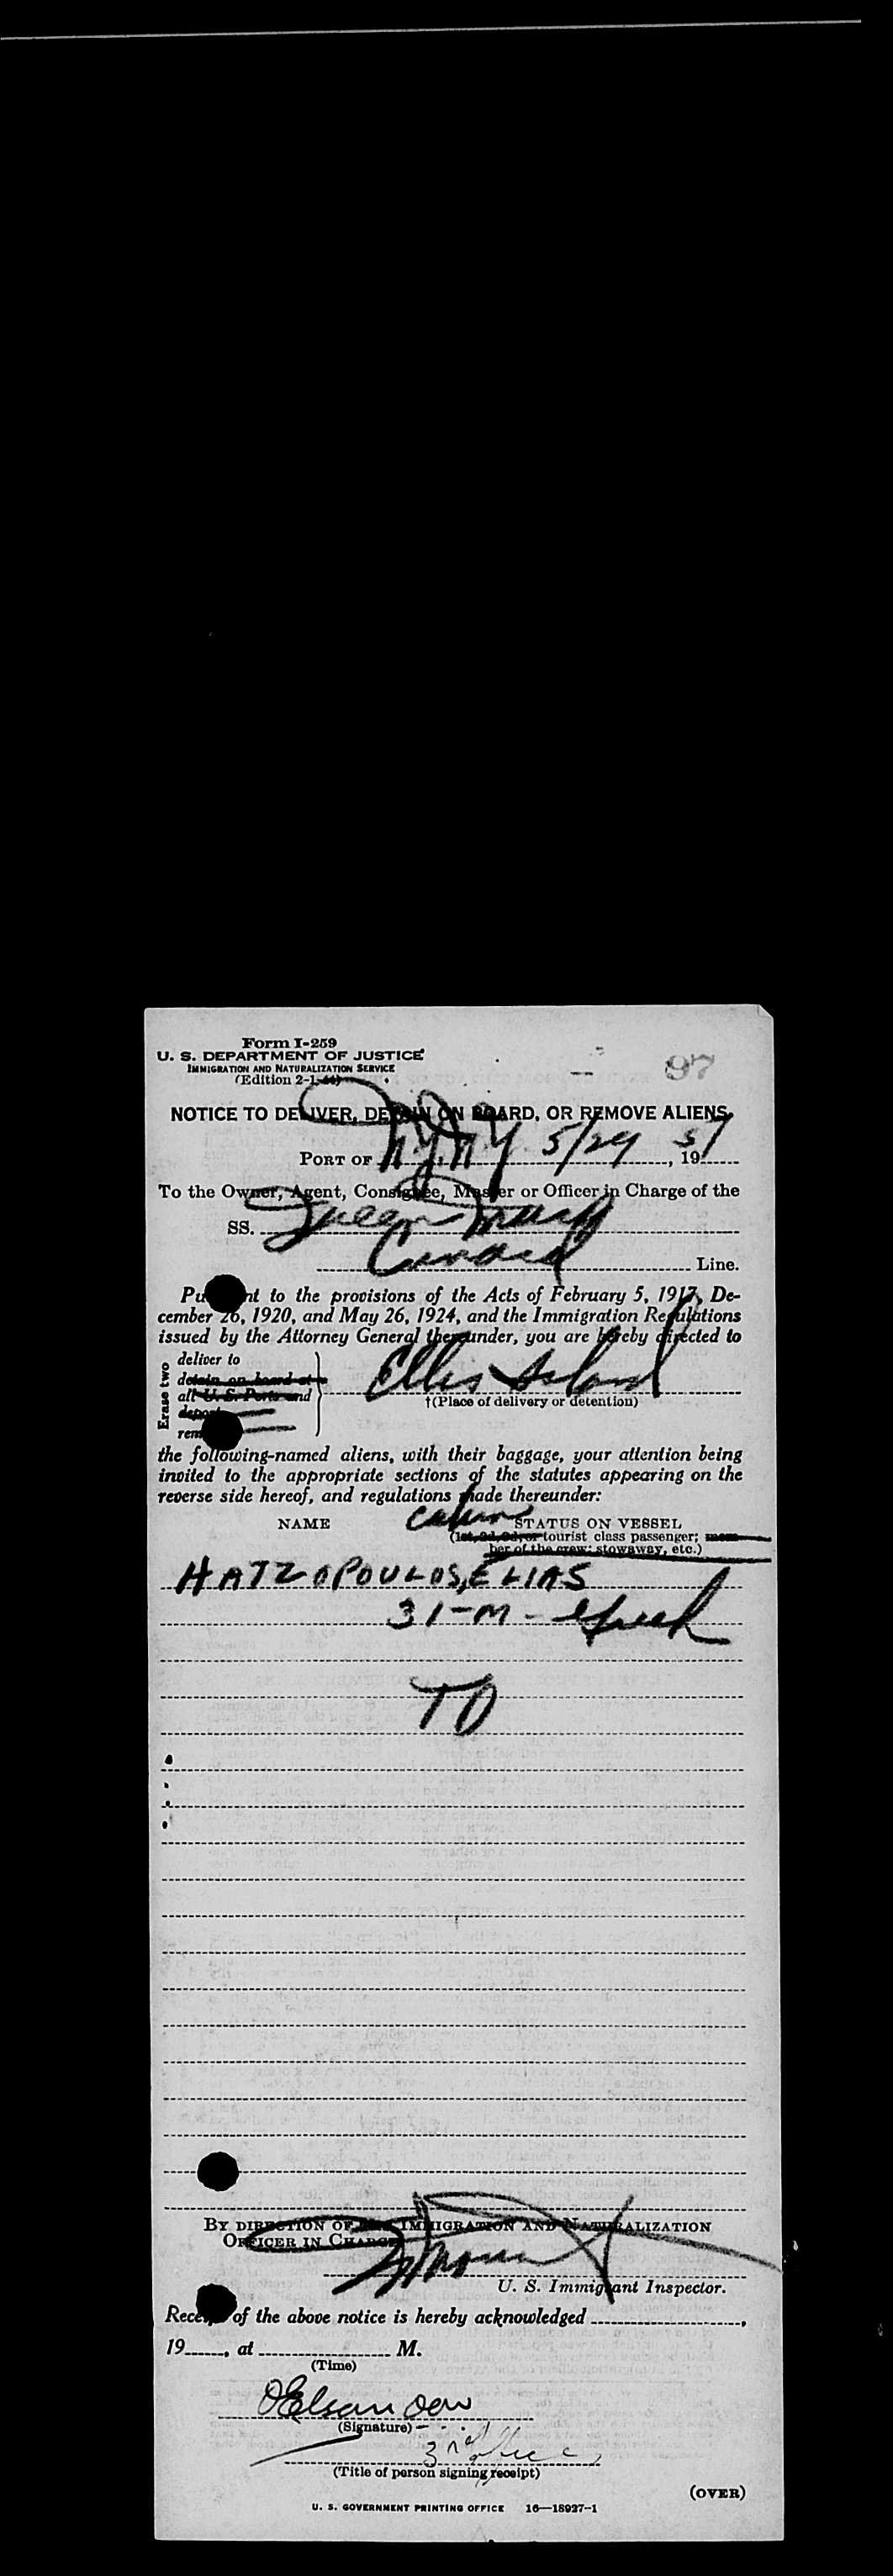 Form I-259
U. S. DEPARTMENT OF JUSTICE
IMMIGRATION AND NATURALIZATION SERVICE
(Edition 2-1-44)
97
NOTICE TO DELIVER, DETAIN ON BOARD, OR REMOVE ALIENS
PORT OF N.Y. N.Y 5/29, 1951
To the Owner, Agent, Consignee, Master or Officer in Charge of the
SS. Queen Mary
Cunard Line.
Pu nt to the provisions of the Acts of February 5, 1917, De-
cember 26, 1920, and May 26, 1924, and the Immigration Regulations
issued by the Attorney General thereunder, you are hereby directed to
Erase two
deliver to
detain on board at
all U. S. Ports and
depor
rem
Ellis Island
†(Place of delivery or detention)
the following-named aliens, with their baggage, your attention being
invited to the appropriate sections of the statutes appearing on the
reverse side hereof, and regulations made thereunder:
cabin
NAME STATUS ON VESSEL
(1st, 2d, 3d, or tourist class passenger; mem-
ber of the crew; stowaway, etc.)
HATZOPOULOS, ELIAS
31-M- Greek
TD
BY DIRECTION OF THE IMMIGRATION AND NATURALIZATION
OFFICER IN CHARGE
U. S. Immigrant Inspector.
Rece of the above notice is hereby acknowledged ,
19 , at M.
(Time)
(Signature)
(Title of person signing receipt)
(OVER)
U. S. GOVERNMENT PRINTING OFFICE 16—18927-1